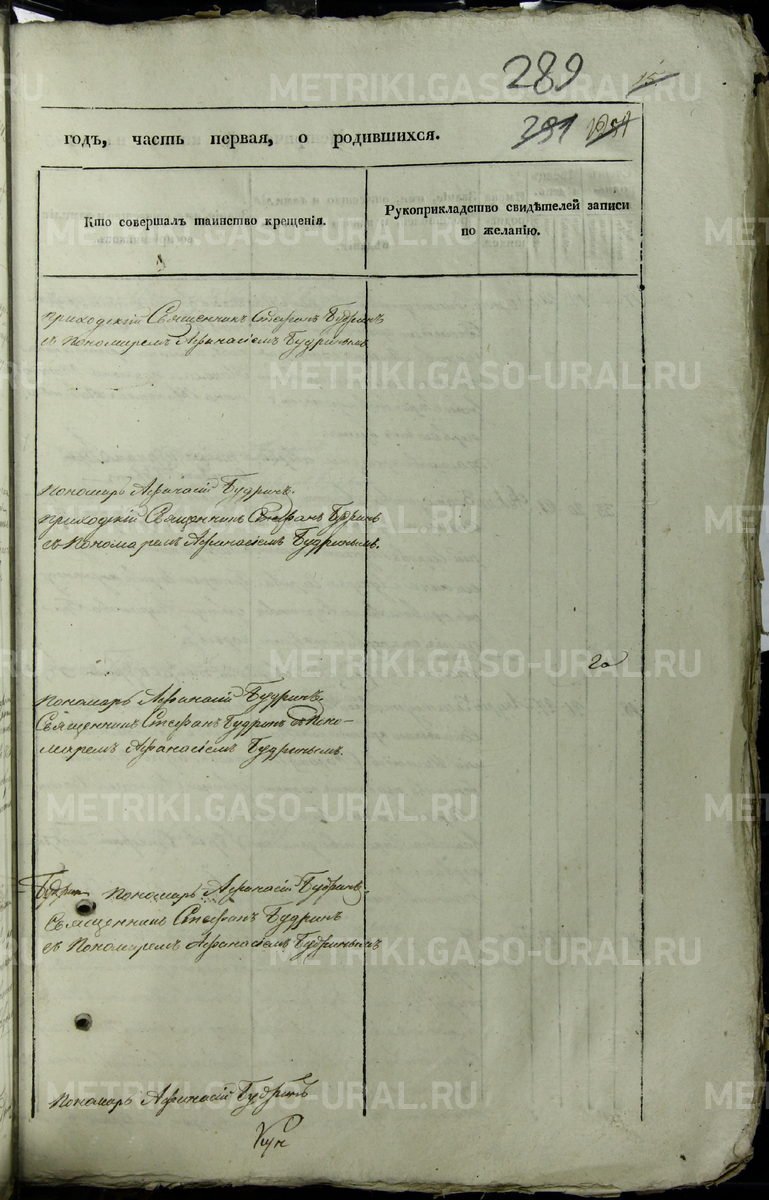 289
15
годъ, часть первая, о родившихся.
281
Кто совершалъ таинство крещенія.
Рукоприкладство свидѣтелей записи
по желанію.
приходскій Священникъ Стефанъ Будринъ
съ Пономаремъ Афанасіемъ Будринымъ
Пономарь Афанасій Будринъ.
приходскій Священникъ Стефанъ Будринъ
съ Пономаремъ Афанасіемъ Будринымъ.
Пономарь Афанасій Будринъ.
Священникъ Стефанъ Будринъ съ Поно-
маремъ Афанасіемъ Будринымъ.
Пономарь Афанасій Будринъ.
Священникъ Стефанъ Будринъ
съ Пономаремъ Афанасіемъ Будринымъ
Пономарь Афанасій Будринъ
METRIKI.GASO-URAL.RU